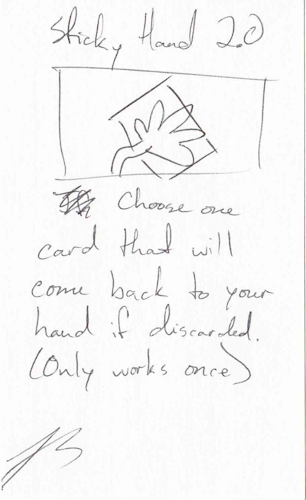 Sticky Hand 2.0
Choose one
card that will
come back to your
hand if discarded.
(Only works once)